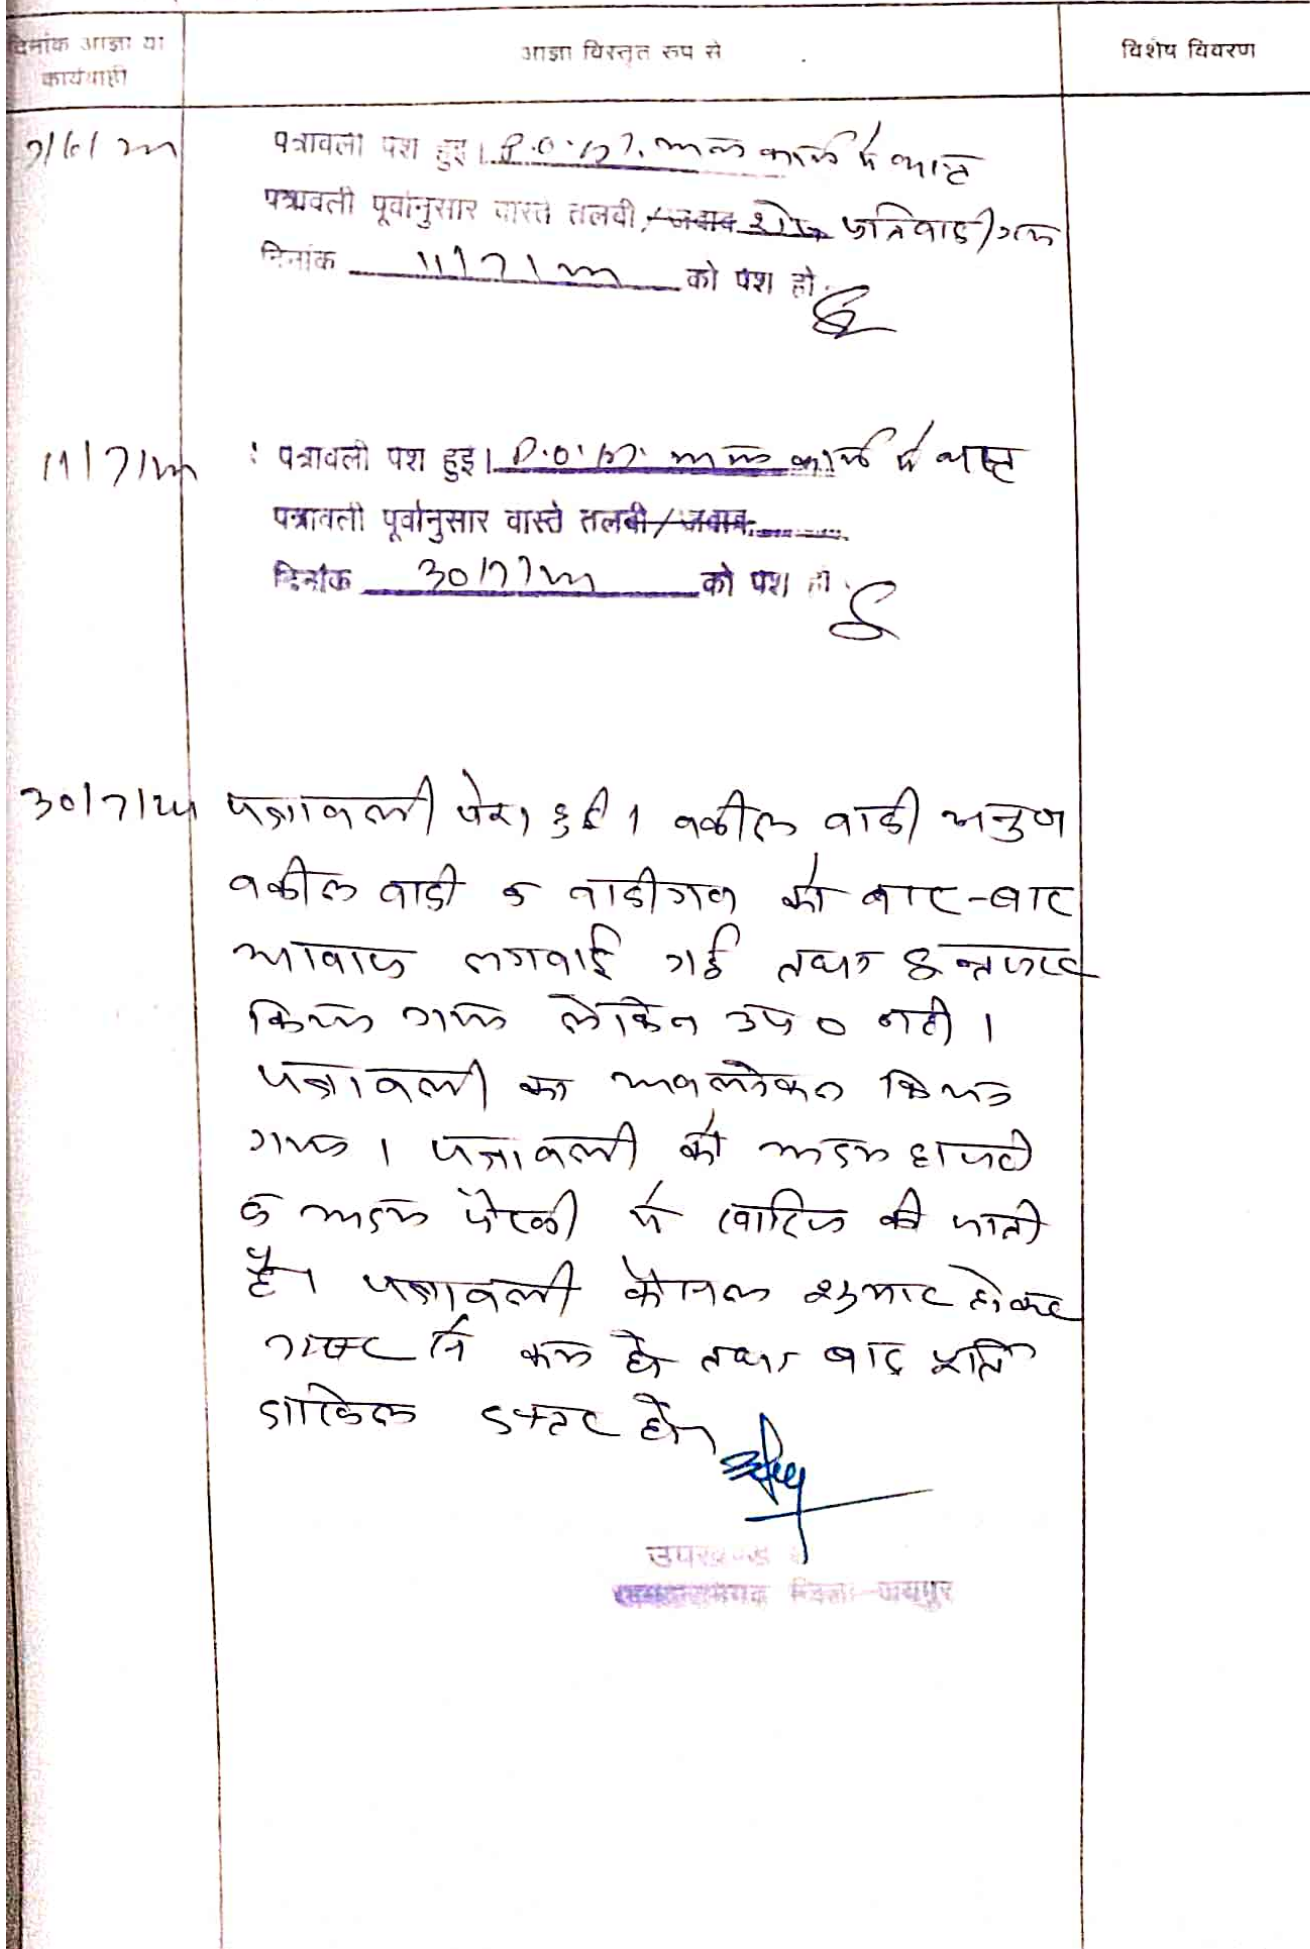 दिनांक आज्ञा या
कार्यवाही
आज्ञा विस्तृत रुप से
विशेष विवरण
पत्रावली पेश हुइ। P.O. कार्य में व्यस्त
पत्रावती पूर्वानुसार वास्ते तलवी, जवाब शेष प्रतिवादीगण
दिनांक 11/7/ को पेश हो
11/7/
पत्रावली पेश हुइ। P.O. कार्य में व्यस्त
पत्रावती पूर्वानुसार वास्ते तलबी/जवाब
दिनांक 30/7/ को पेश हो
30/7/ पत्रावली पेश हुई। वकील वादी अनु०
वकील वादी व वादीगण को बार-बार
आवाज लगवाई गई तथा इन्तजार
किया गया लेकिन उप० नही।
पत्रावली का अवलोकन किया
गया। पत्रावली को अदम हाजरी
व अदम पैरवी में खारिज की जाती
है। पत्रावली फैसल शुमार होकर
नम्बर से कम हो तथा बाद
दाखिल दफ्तर हो।
उपखण्ड
जिला-जयपुर